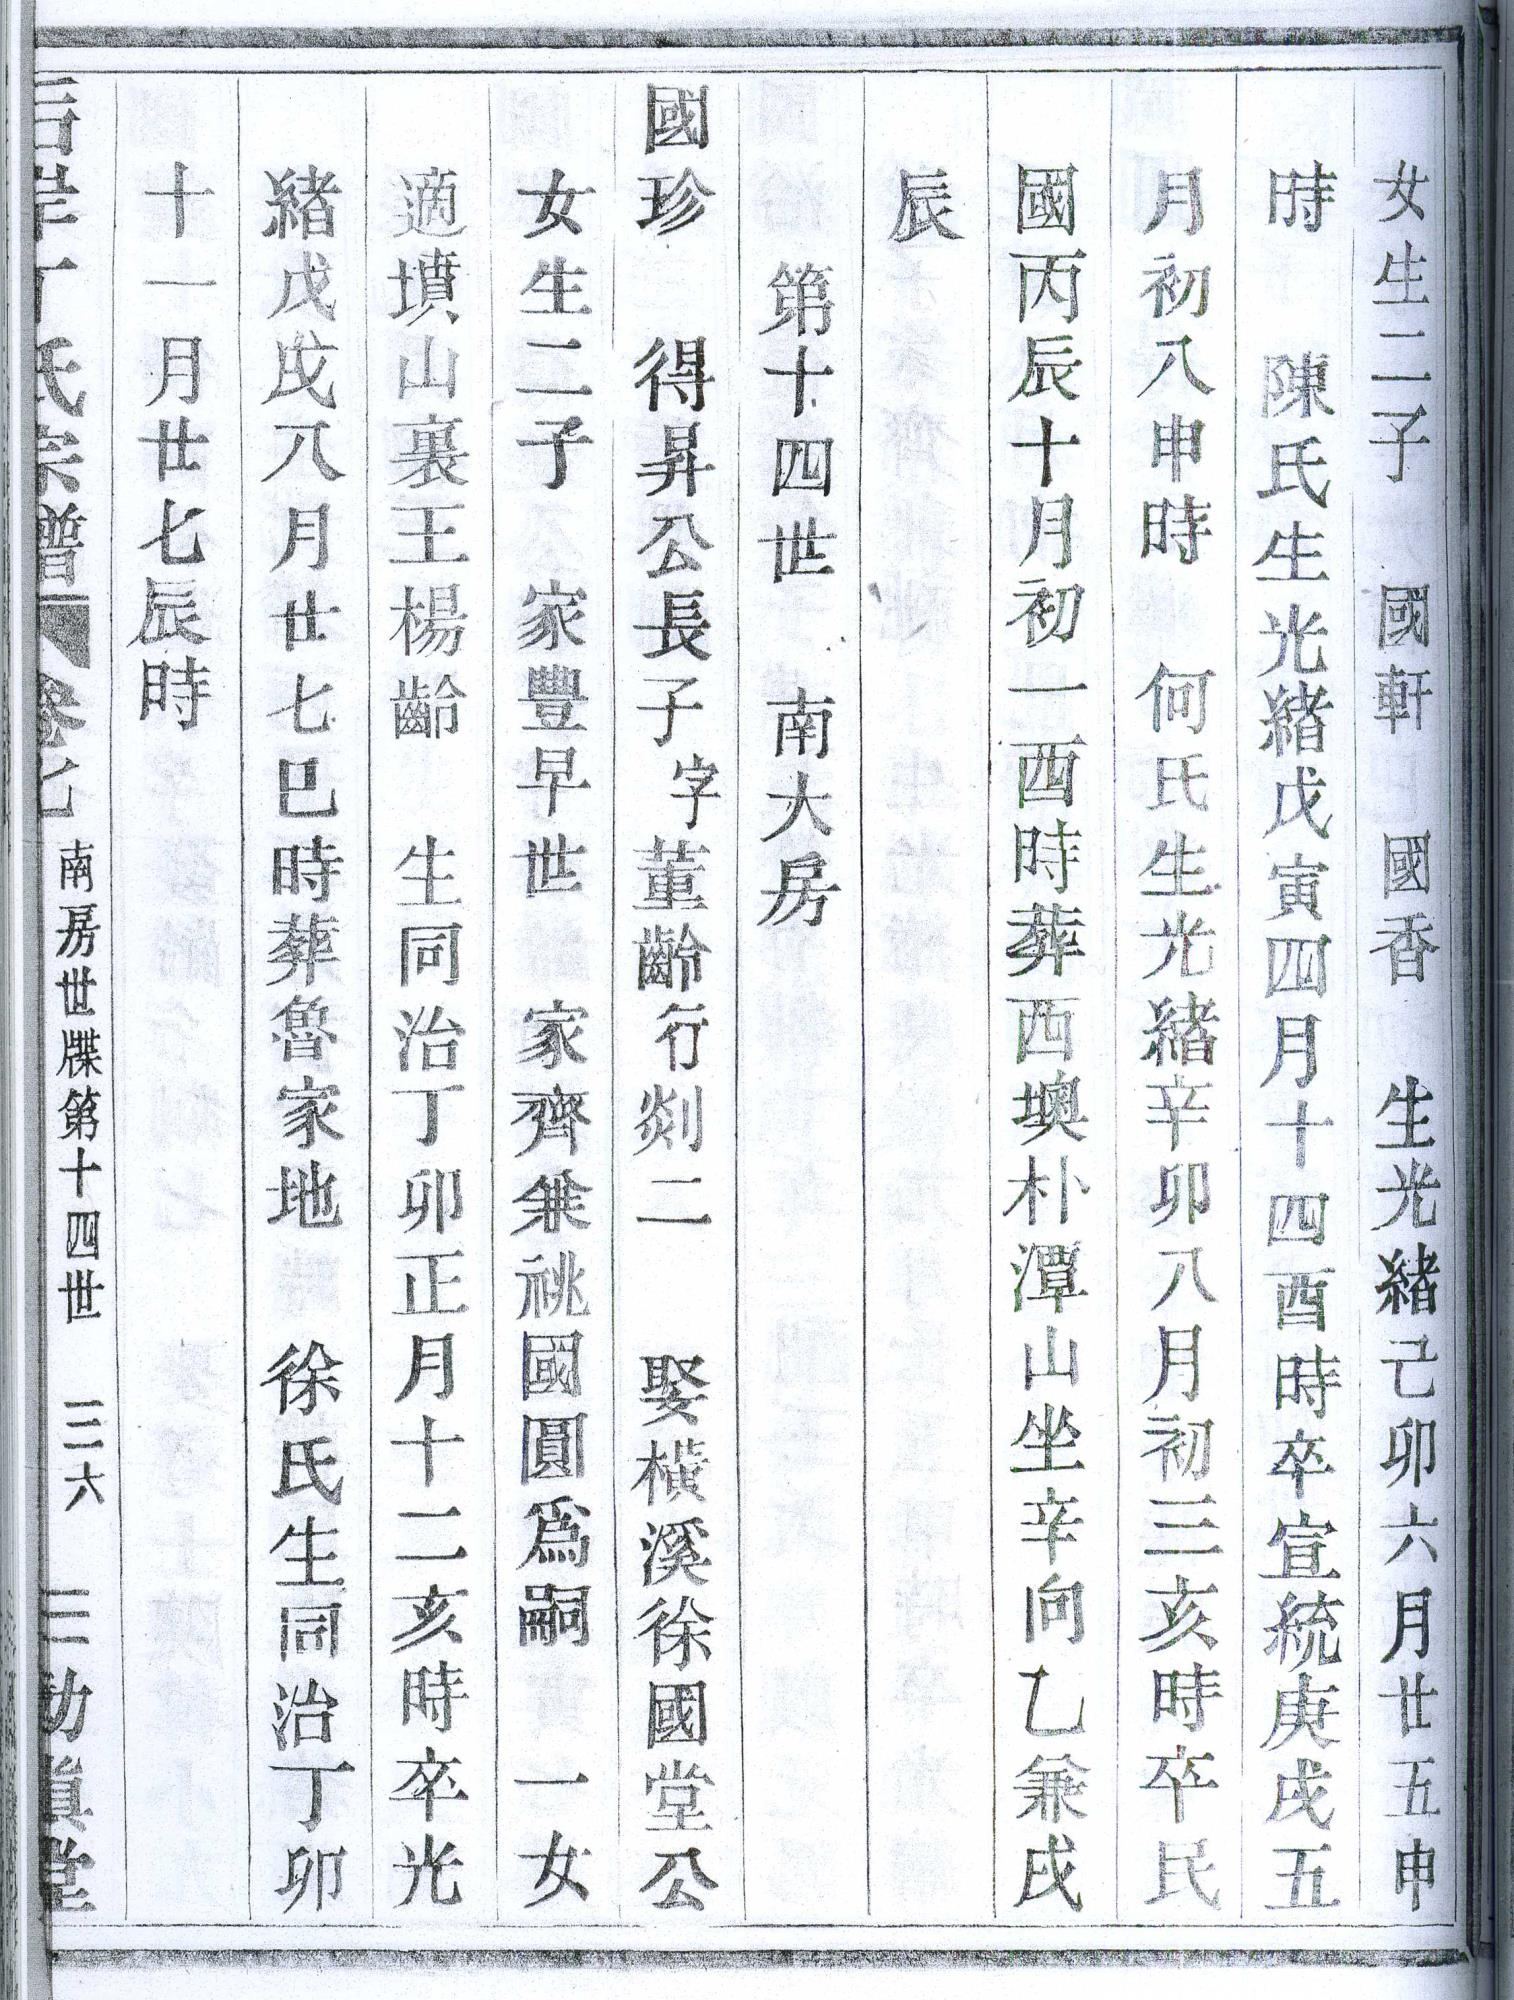 女生二子　國軒　國香　生光緒己卯六月廿五申
時　陳氏生光緒戊寅四月十四酉時卒宣統庚戌五
月初八申時　何氏生光緒辛卯八月初三亥時卒民
國丙辰十月初一酉時葬西墺朴潭山坐辛向乙兼戌
辰
第十四世　南大房
國珍　得昇公長子字董齡行剡二　娶橫溪徐國堂公
女生二子　家豐早世　家齊兼祧國圓為嗣　一女
適墳山裏王楊齡　生同治丁卯正月十二亥時卒光
緒戊戌八月廿七巳時葬魯家地　徐氏生同治丁卯
十一月廿七辰時
丁氏宗譜　卷七　南房世牒第十四世　三六　三　勛眞堂